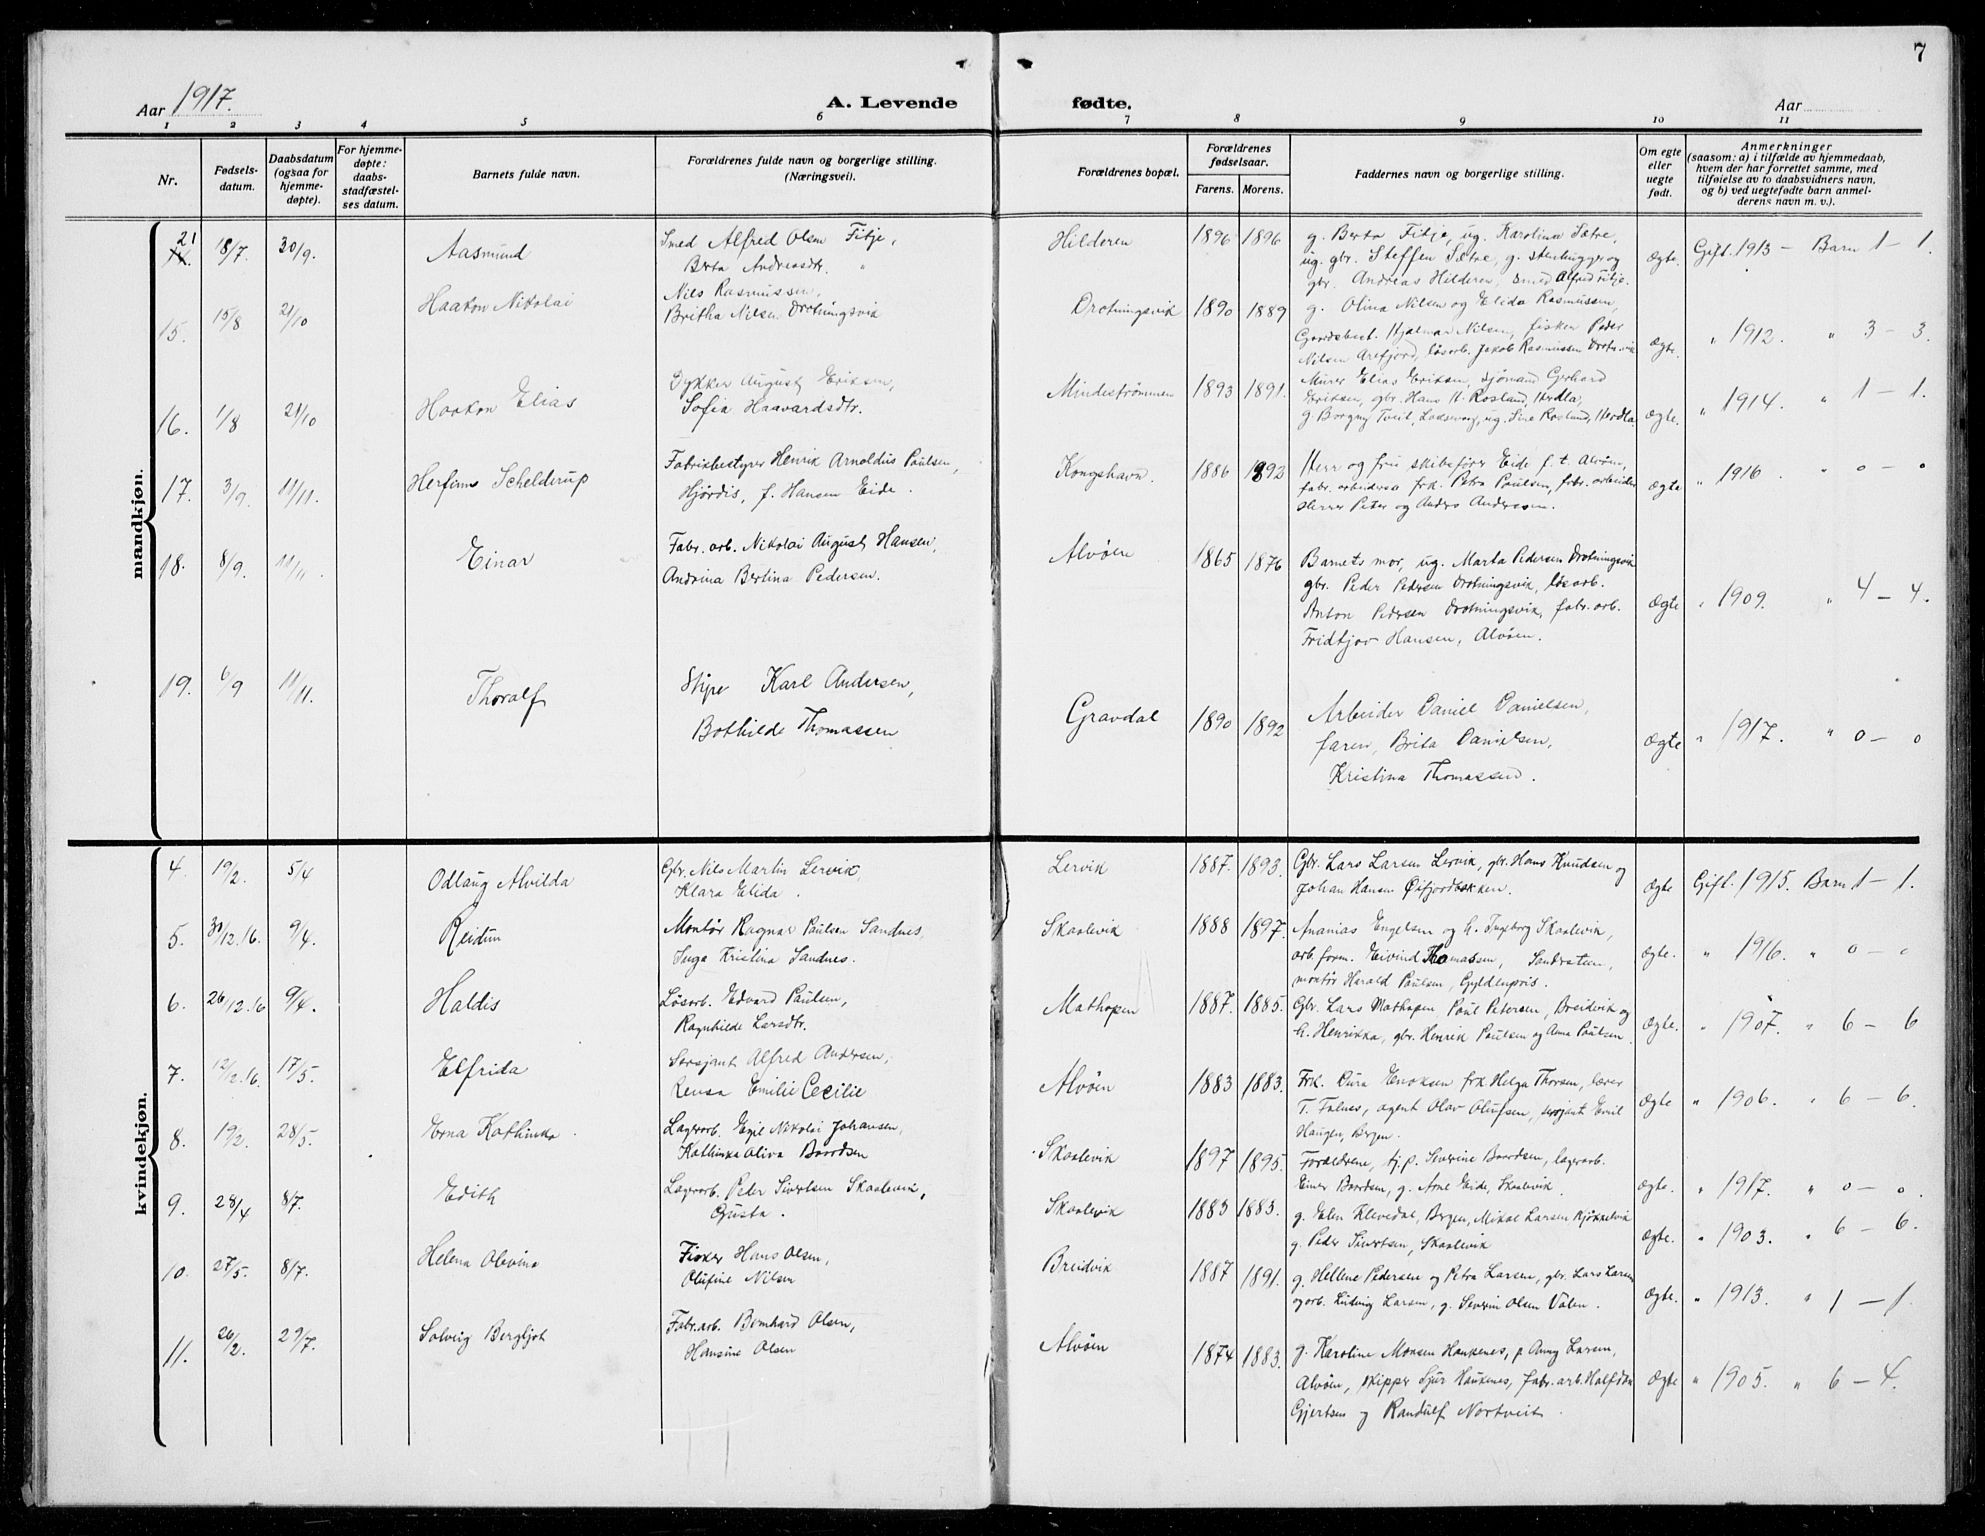 7
Aar 1917.
A. Levende fødte.
Aar
1 2 3 4 5 6 7 8 9 10 11
Nr.
Fødsels-
datum.
Daabsdatum
(ogsaa for
hjemme-
døpte).
For hjemme-
døpte:
daabs-
stadfæstel-
ses datum.
Barnets fulde navn.
Forældrenes fulde navn og borgerlige stilling.
(Næringsvei).
Forældrenes bopæl.
Forældrenes
fødselsaar.
Farens. Morens.
Faddernes navn og borgerlige stilling.
Om egte
eller
uegte
født.
Anmerkninger
(saasom: a) i tilfælde av hjemmedaab,
hvem der har forrettet samme, med
tilføielse av to daabsvidners navn,
og b) ved uegtefødte barn anmel-
derens navn m. v.).
mandkjøn.
21
14. 18/7. 30/9. Aasmund
Smed Alfred Olsen Fitje,
Berta Andreasdtr. "
Hilderen 1896 1896
g. Berta Fitje, ug. Karolina Sætre,
ug. gbr. Steffen Sætre, g. stenhugger og
gbr. Andreas Hilderen, smed Alfred Fitje.
Ægte. Gift 1913 — Barn 1 — 1.
15. 15/8 21/10 Haakon Nikolai
Nils Rasmussen,
Britha Nilsen Drotningsvik
Drotningsvik 1890 1889
g. Olina Nilsen og Elida Rasmussen,
Gaardsbest. Hjalmar Nilsen, fisker Peder
Nilsen Arefjord, løsarb. Jakob Rasmussen Drotn.vik
Ægte. " 1912. " 3 — 3.
16. 1/8 21/10 Haakon Elias
Dykker August Eriksen,
Sofia Haavardsdtr.
Mindestrømmen 1893 1891.
Murer Elias Eriksen, sjømand Gerhard
Eriksen, gbr. Hans H. Rosland, Herdla,
g. Borgny Tveit, Laksevaag, ug. Sine Rosland, Herdla
Ægte. " 1914. " 1 — 1.
17. 3/9. 11/11. Herfinns Schelderup
Fabrikbestyrer Henrik Arnoldus Paulsen,
Hjørdis, f. Hansen Eide.
Kongshavn. 1886 1892
Herr og fru skibsfører Eide f. t. Alvøen,
fabr. arbeiderse frk. Petra Paulsen, fabr. arbeider
Herrer Peter og Anders Andersen.
Ægte " 1916 " 0 — 0
18. 8/9. 11/11. Einar
Fabr. arb. Nikolai August Hansen,
Andrina Bertina Pedersen.
Alvøen 1865 1876
Barnets mor, ug. Marta Pedersen Drotningsvik
gbr. Peder Pedersen Drotningsvik, løsarb.
Anton Pedersen Drotningsvik, fabr. arb.
Fridtjov Hansen, Alvøen.
Ægte " 1909. " 4 — 4.
19. 6/9 11/11. Thoralf
Karl Andersen,
Bothilde Thomassen
Gravdal 1890 1892
Arbeider Daniel Danielsen,
faren, Brita Danielsen,
Kristina Thomassen.
Ægte " 1917. " 0 — 0
kvindekjøn.
4. 19/2. 5/4 Odlaug Alvilda
Gbr. Nils Martin Lervik,
Klara Elida.
Lervik 1887. 1893.
Gbr. Lars Larsen Lervik, gbr. Hans Knudsen og
Johan Hansen Øifjordbakken.
Ægte Gift. 1915. Barn 1 — 1.
5. 30/12.16. 9/4. Reidun
Montør Ragnar Paulsen Sandnes,
Inga Kristina Sandnes.
Skaalevik 1888 1897.
Ananias Engelsen og h. Ingeborg Skaalevik,
arb. form. Eivind Thomassen, Sandsteen,
montør Harald Paulsen, Gyldenpris.
Ægte. " 1916. " 0 — 0
6. 26/12.16 9/4. Haldis
Løsarb. Edvard Paulsen,
Ragnhilde Larsdtr.
Mathopen 1887. 1885.
Gbr. Lars Mathopen Paul Petersen, Breidvik og
h. Henrikka, gbr. Henrik Paulsen og Anna Paulsen.
Ægte. " 1907. " 6 — 6
7. 12/12.16. 17/5. Elfrida
Sersjant Alfred Andersen,
Rensa Emilie Cecilie
Alvøen 1883 1883.
Frk. Dura Enoksen frk. Helga Thorsen, lærer
T. Falnes, agent Olav Olufsen, sersjant Emil
Haugen, Bergen.
Ægte " 1906. " 6 — 6.
8. 19/2. 28/5. Erna Kathinka.
Lagerarb. Egil Nikolai Johansen,
Kathinka Oliva Baardsen
Skaalevik 1897 1895.
Forældrene, tj.p. Severine Baardsen, lagerarb.
Einer Baardsen, g. Arne Eide, Skaalevik.
Ægte. " 1917. " 0 — 0.
9. 28/4 8/7. Edith
Lagerarb. Peder Sivertsen Skaalevik,
Gusta.
Skaalevik 1883 1883.
g. Elen Klevedal, Bergen, Mikal Larsen Kjøkkelvik
g. Peder Sivertsen, Skaalevik
Ægte. " 1903. " 6 — 6.
10. 27/5. 8/7. Helena Olevina
Fisker Hans Olsen,
Olufine Nilsen
Breidvik 1887 1891.
g. Hellene Pedersen og Petra Larsen, gbr. Lars Larsen
og arb. Ludvig Larsen, g. Severin Olsen Valen.
Ægte. " 1913. " 1 — 1.
11. 26/2. 29/7. Solveig Bergljot
Fabr. arb. Bernhard Olsen,
Hansine Olsen
Alvøen 1874 1883.
g. Karoline Monsen Haukenes, p Anny Larsen,
Alvøen, skipper Sjur Haukenes, fabr. arb. Halfdan
Gjertsen og Randulf Nortveit.
Ægte " 1905. " 6 — 4.